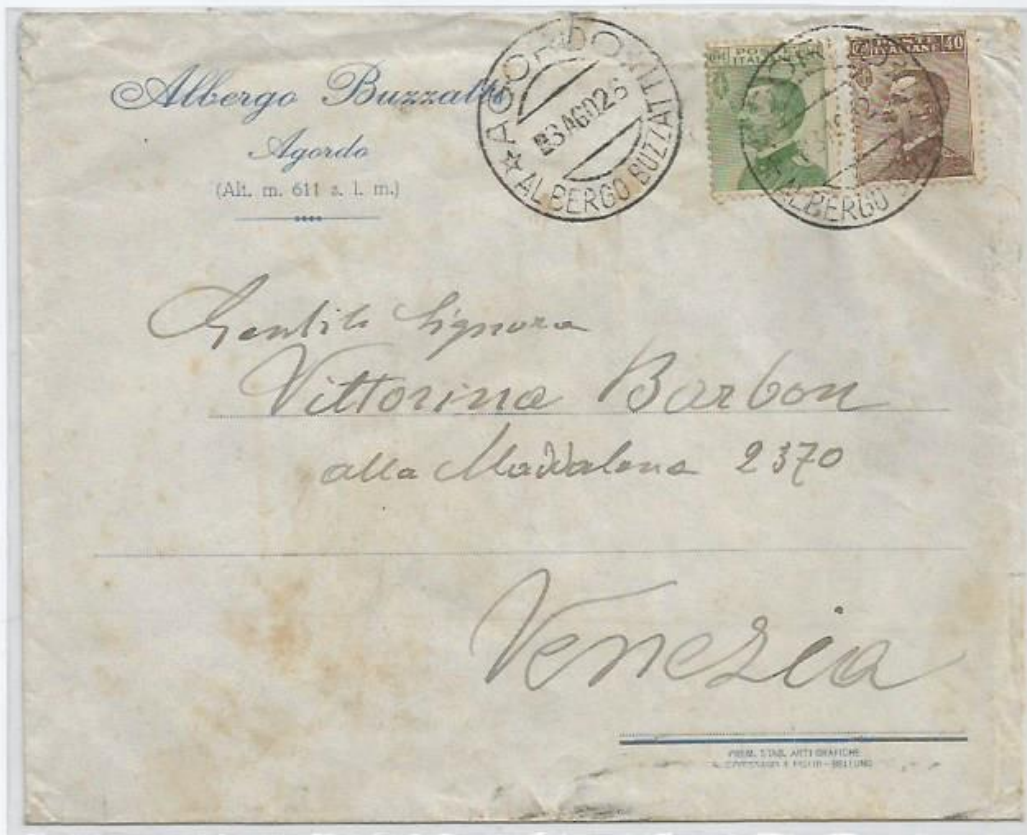 Albergo Buzzatti
Agordo
(Alt. m. 611 s. l. m.)
AGORDO
3 AGO 26
ALBERGO BUZZATTI
POSTE
ITALIANE
POSTE
ITALIANE 40
ALBERGO
Gentile Signora
Vittorina Barbon
alla Maddalena 2370
Venezia
PREM. STAB. ARTI GRAFICHE
FIGLIO - BELLUNO